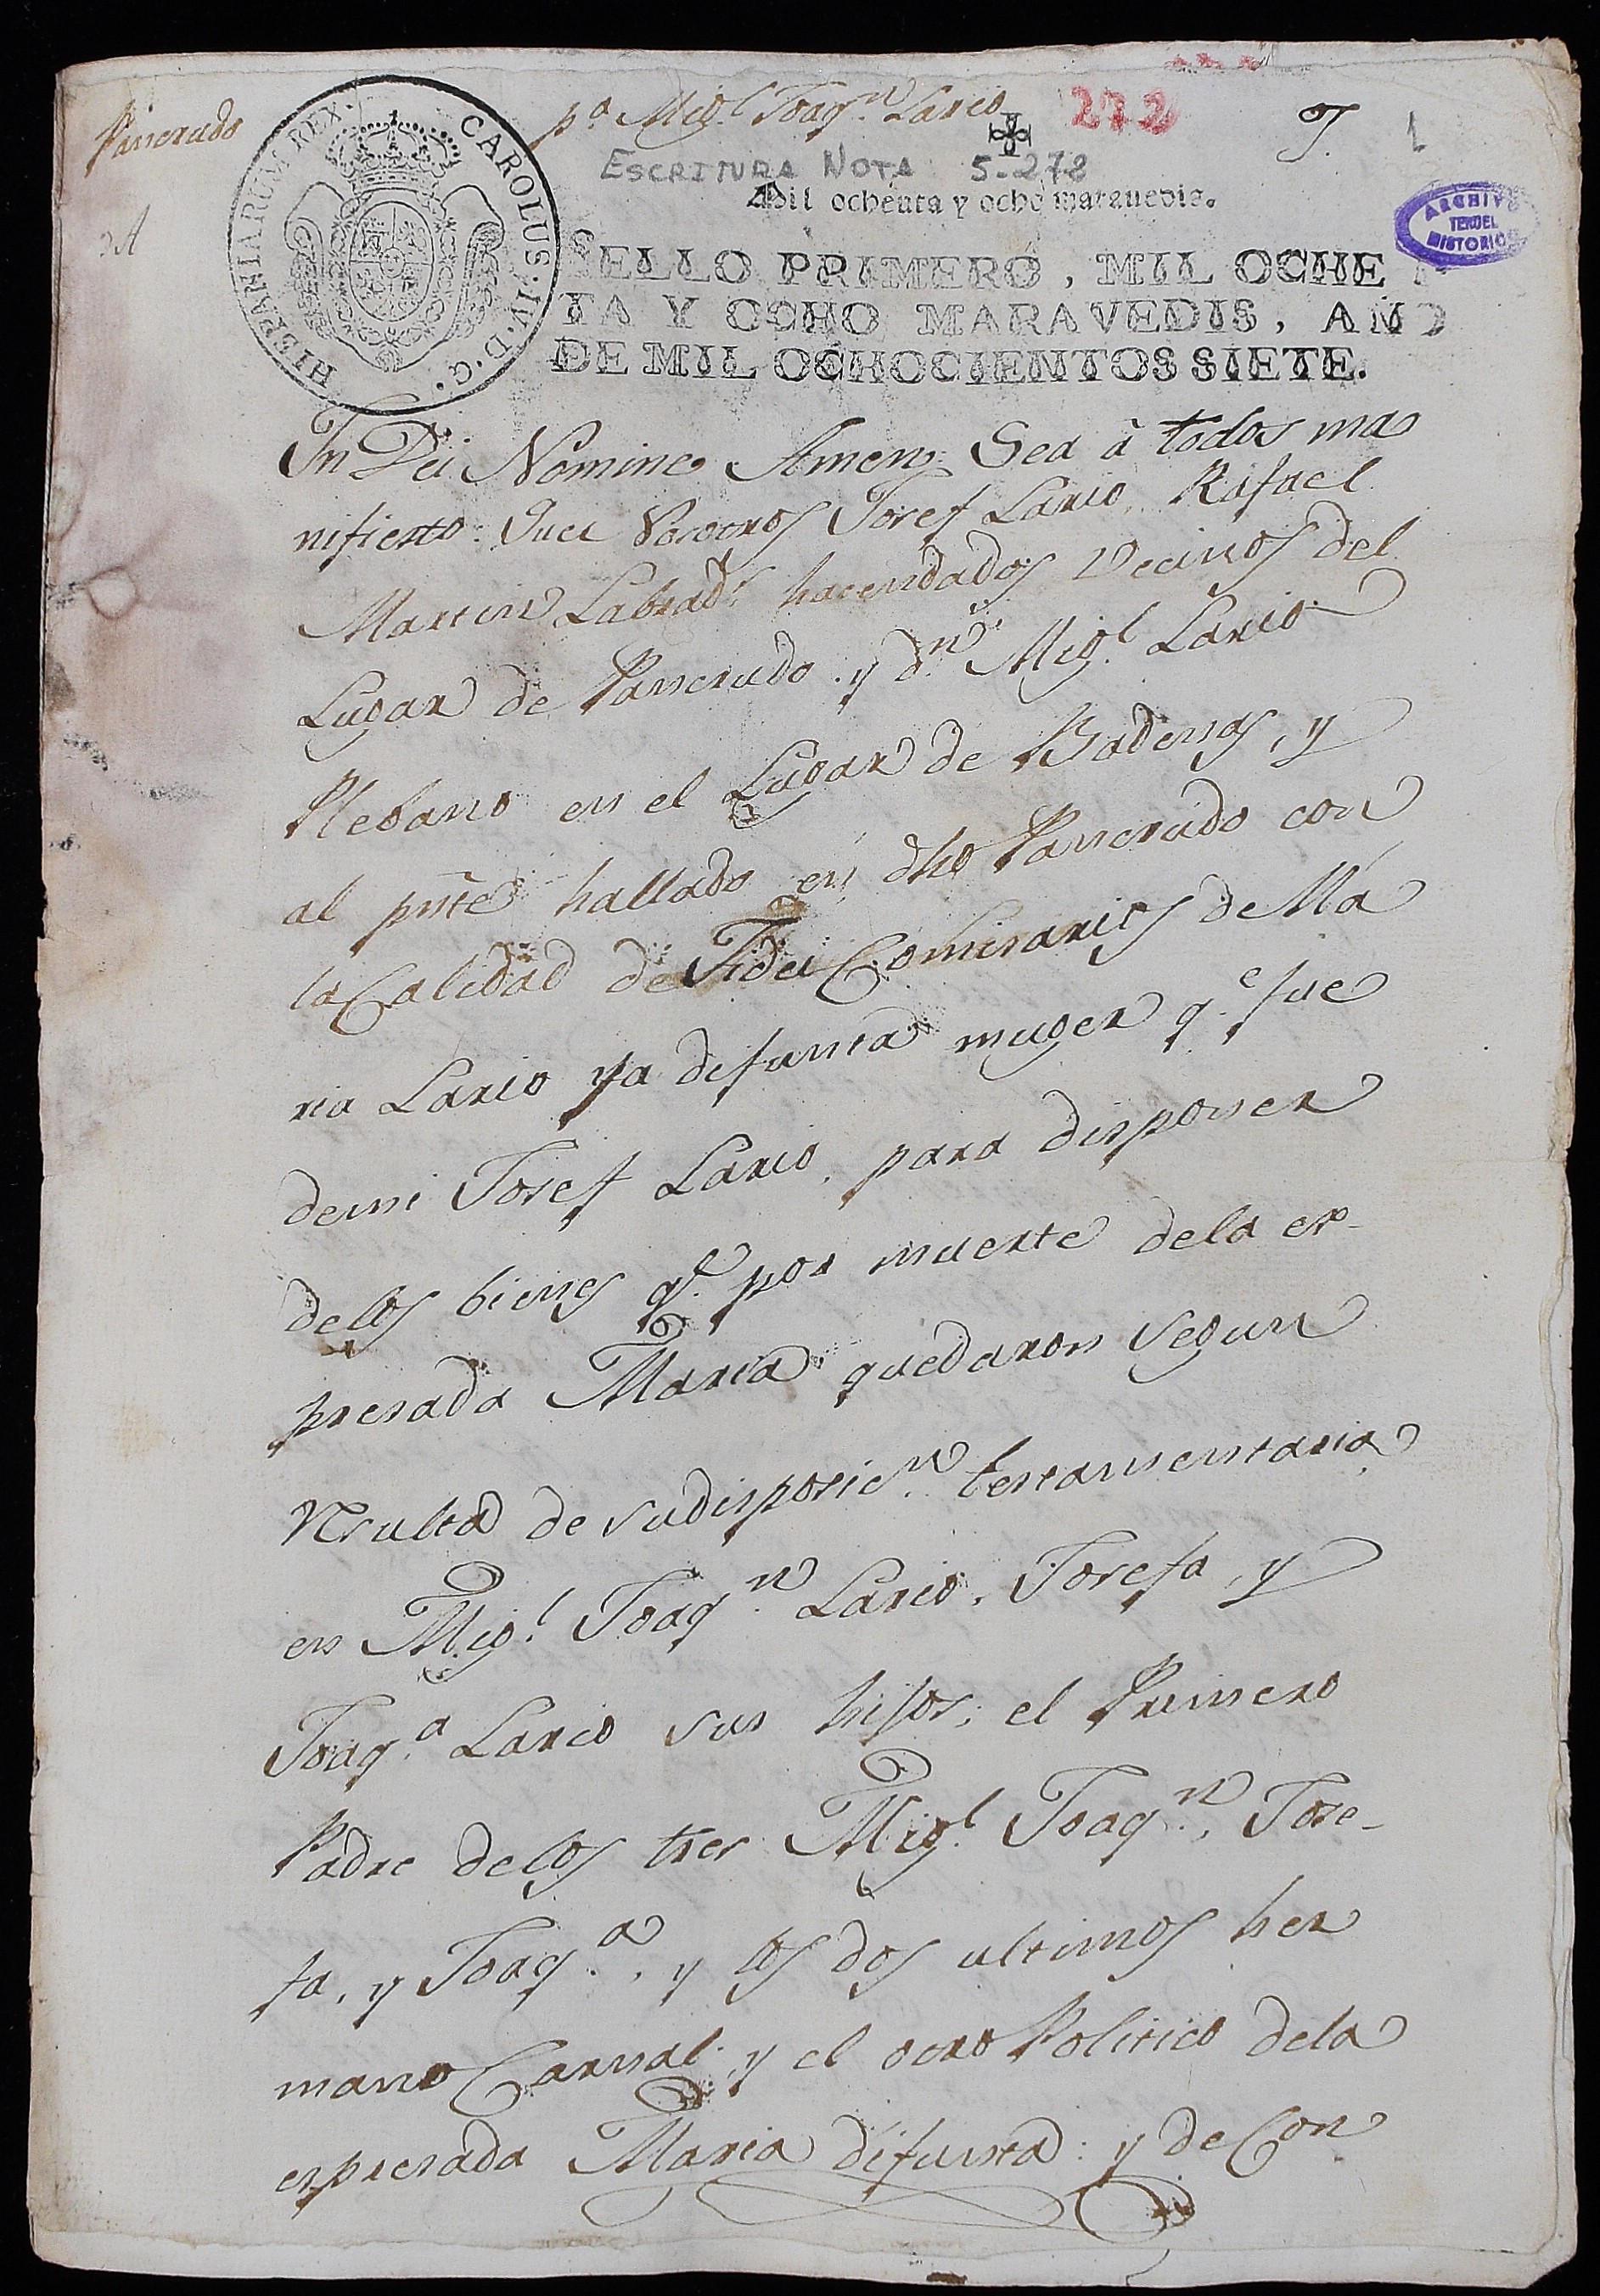 Pancrudo
pª Migl. Joaqn. Lario
272
1
ESCRITURA NOTA 5-272
Mil ochenta y ocho marauedis.
HISPANIARUM REX. CAROLUS·IV·D·G·
ARCHIVO
TERUEL
HISTORICO
SELLO PRIMERO, MIL OCHEN
TA Y OCHO MARAVEDIS, AÑO
DE MIL OCHOCIENTOS SIETE.
In Dei Nomine Amen, Sea à todos ma
nifiesto: Que Nosotros Josef Lario, Rafael
Martin Labrads. hacendados Vecinos del
Lugar de Pancrudo y dn. Migl. Lario
Plebano en el Lugar de Badenas, y
al pnte hallado en dho Pancrudo con
la Calidad de Fidei Comisarios de Ma
ria Lario ya difunta muger qe. fue
de mi Josef Lario, para disponer
de los bienes qe. por muerte de la es-
presada Maria quedaron segun
resulta de su disposicn. testamentaria
en Migl. Joaqn. Lario, Josefa, y
Joaqa. Lario sus hijos; el Primero
Padre de los tres Migl. Joaqn., Jose-
fa, y Joaqa., y los dos ultimos her
mano Carnal y el otro Politico de la
espresada Maria difunta: y de Con